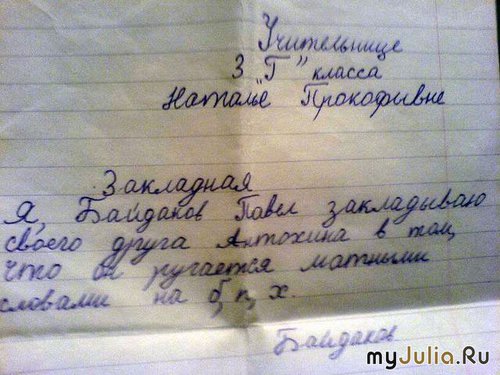 Учительнице
3 "Г" класса
Наталье Прокофивне
Закладная
Я, Байдаков Павел закладываю
своего друга Антохина в том,
что он ругается матными
словами на б, п, х.
Байдаков
myJulia.Ru